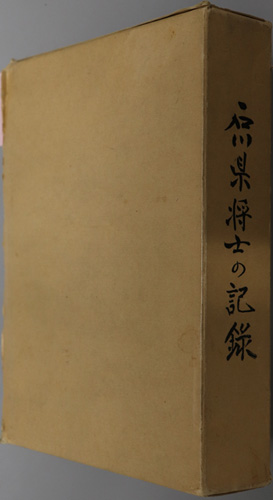 石川県将士の記録